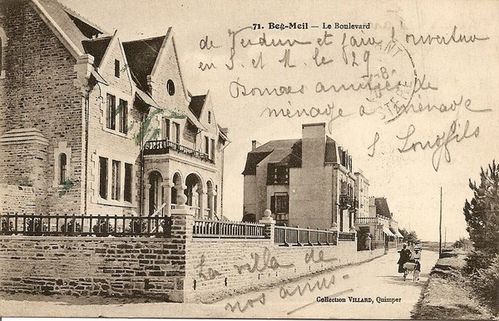 71. Beg-Meil — Le Boulevard
de Verdun et faire l'ouverture
en S. et M. le 29
Bonnes amitiés de
ménage à ménage
S. Longfils
La villa de
nos amis
Collection VILLARD, Quimper